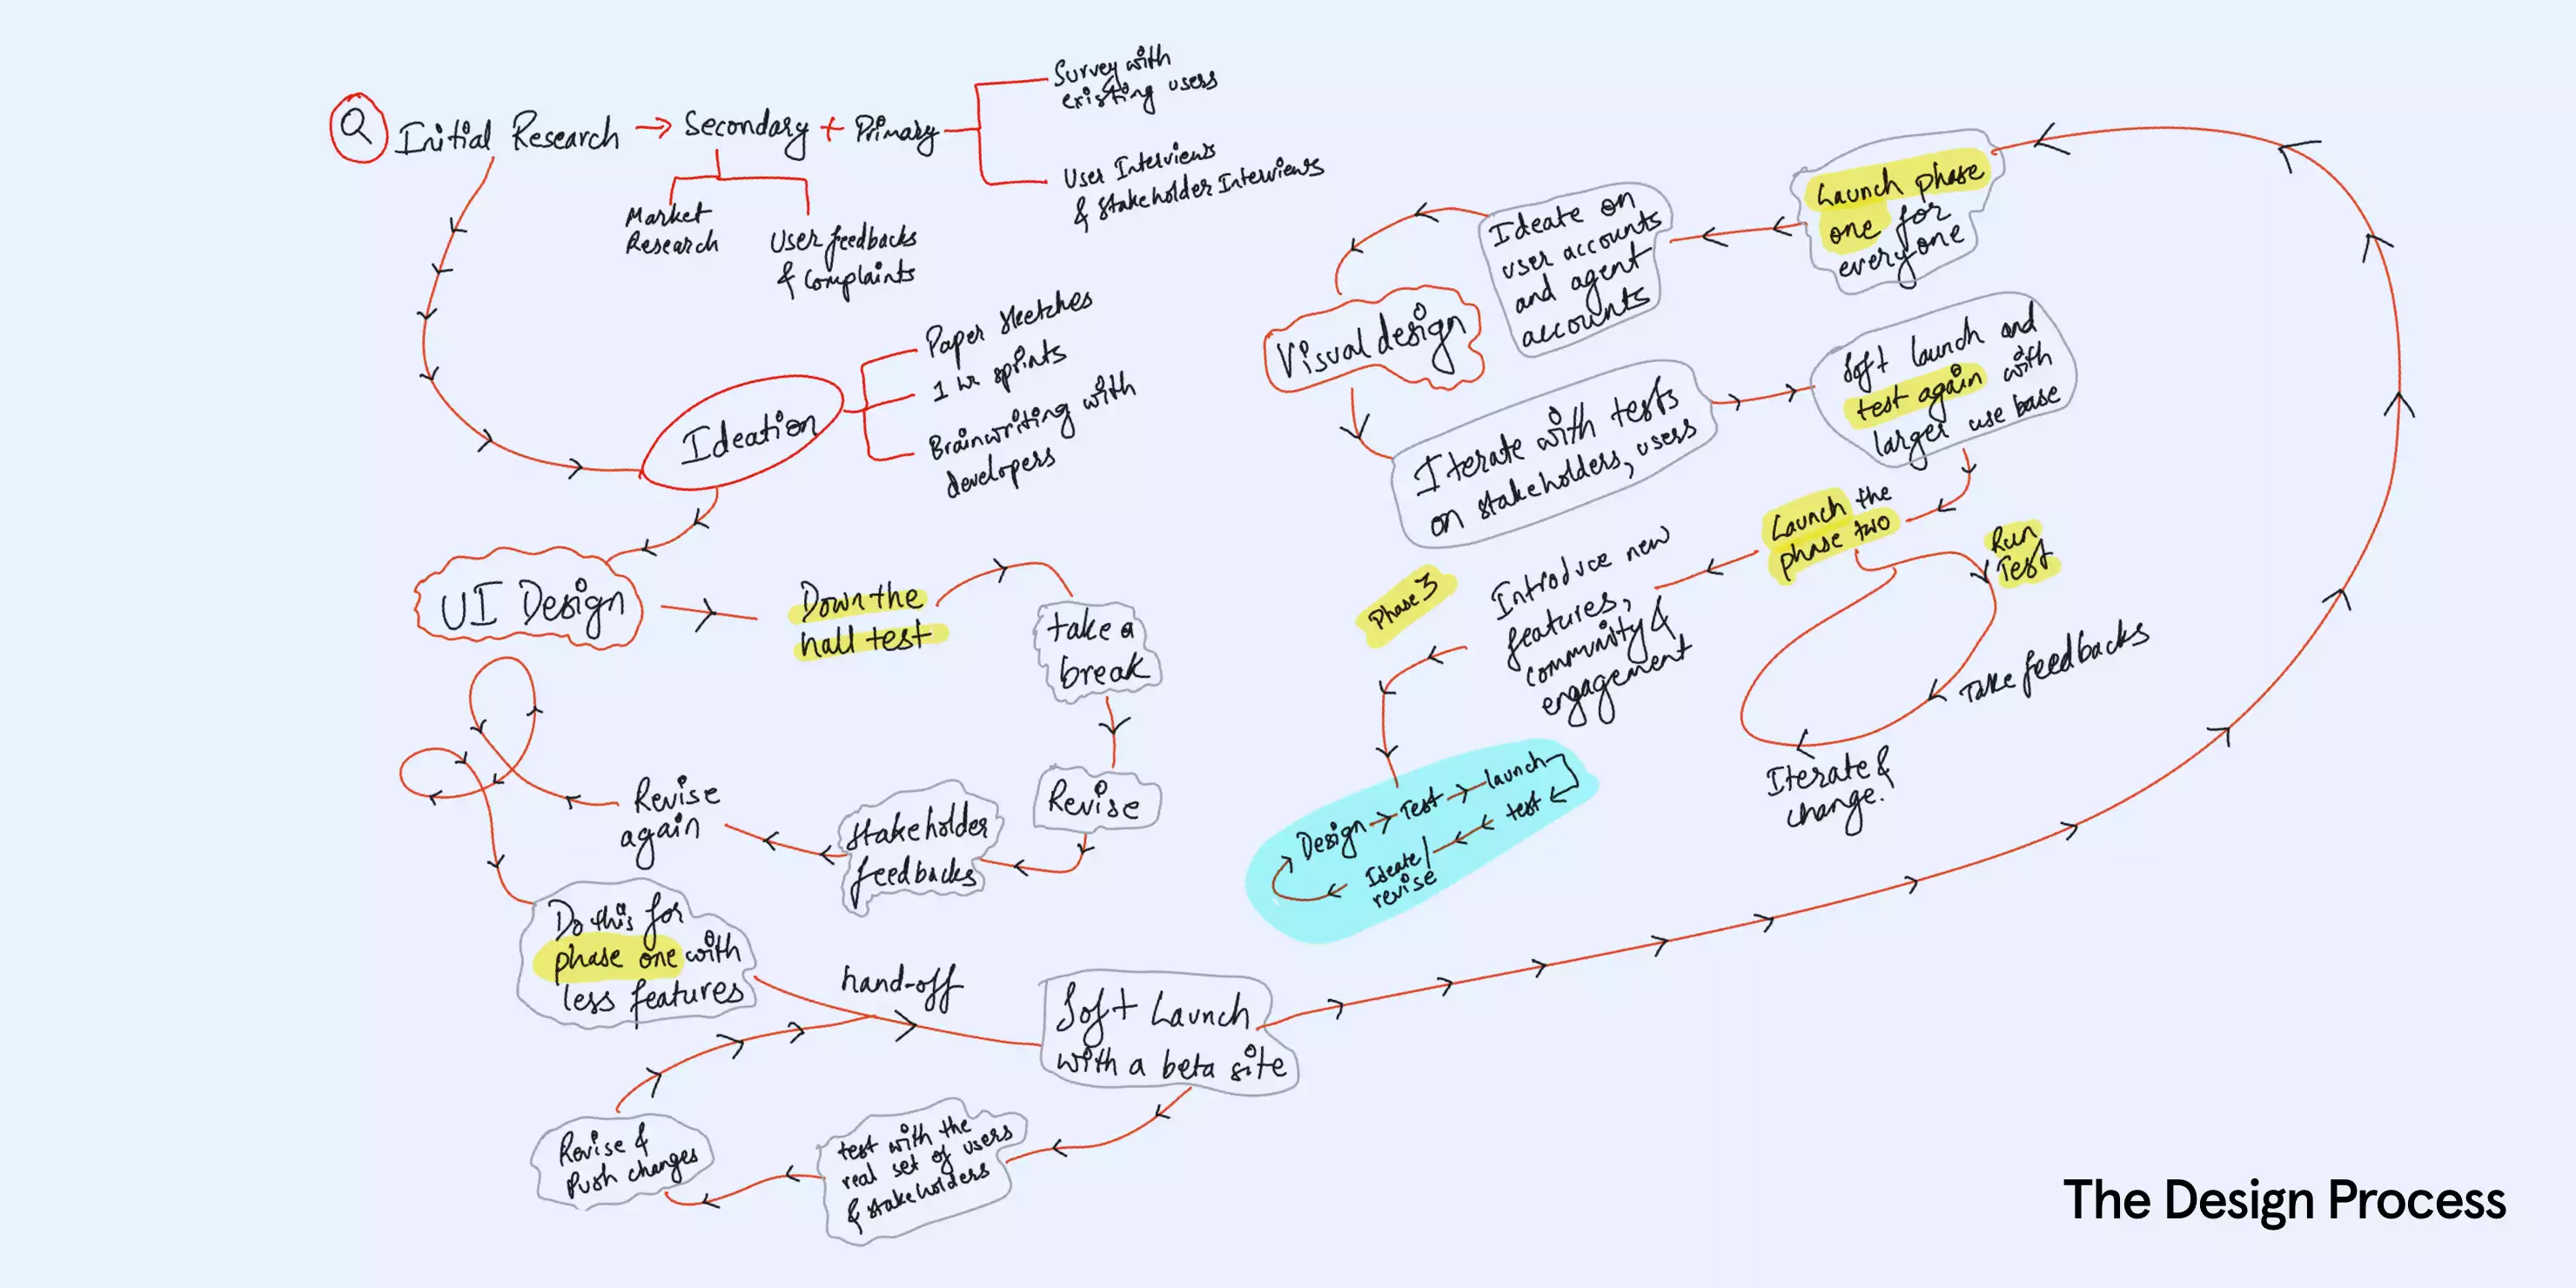 Initial Research → Secondary + Primary
Survey with
existing users
User Interviews
& Stakeholder Interviews
Market
Research
User feedbacks
& Complaints
Ideation
Paper sketches
1 hr sprints
Brainwriting with
developers
UI Design
Down the
hall test
take a
break
Revise
Stakeholder
feedbacks
Revise
again
Do this for
phase one with
less features
hand-off
Soft Launch
with a beta site
test with the
real set of users
& stakeholders
Revise &
Push changes
Launch phase
one for
everyone
Ideate on
user accounts
and agent
accounts
Visual design
Iterate with tests
on stakeholders, users
Soft launch and
test again with
larger use base
Launch the
phase two
Run
Test
Take feedbacks
Iterate &
change.
Introduce new
features,
community &
engagement
Phase 3
Design → Test → launch
test
Ideate/
revise
The Design Process